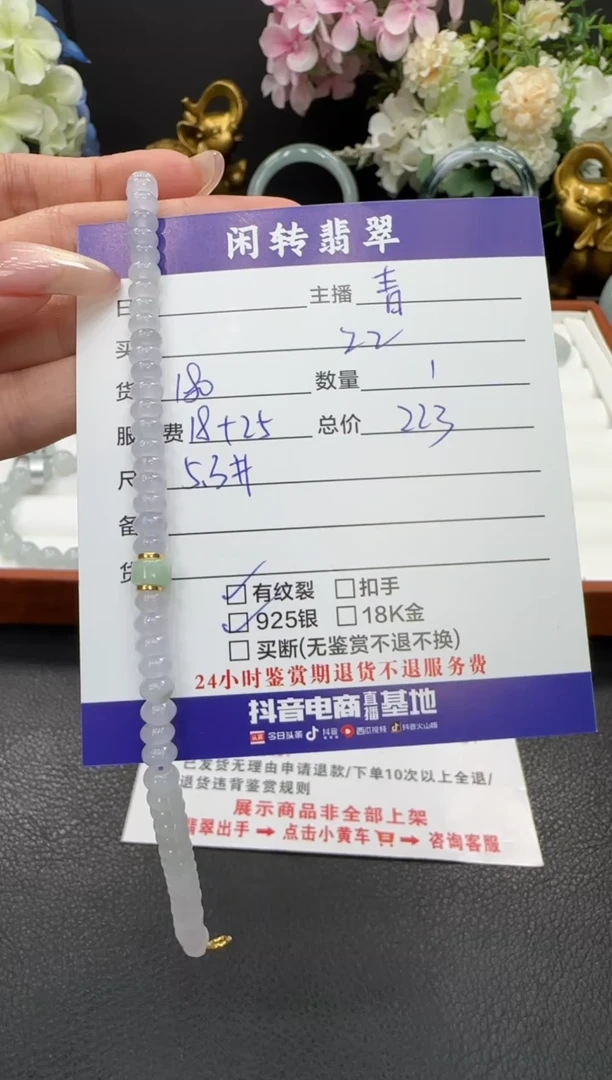 闲转翡翠
日 主播 青
买 22
货 180 数量 1
服 费 18+25 总价 223
尺 5.3#
备
货
☑ 有纹裂 □ 扣手
☑ 925银 □ 18K金
□ 买断(无鉴赏不退不换)
24小时鉴赏期退货不退服务费
抖音电商直播基地
头条 今日头条 抖音 西瓜视频 抖音火山版
已发货无理由申请退款/下单10次以上全退/
退货违背鉴赏规则
展示商品非全部上架
翡翠出手 → 点击小黄车 → 咨询客服